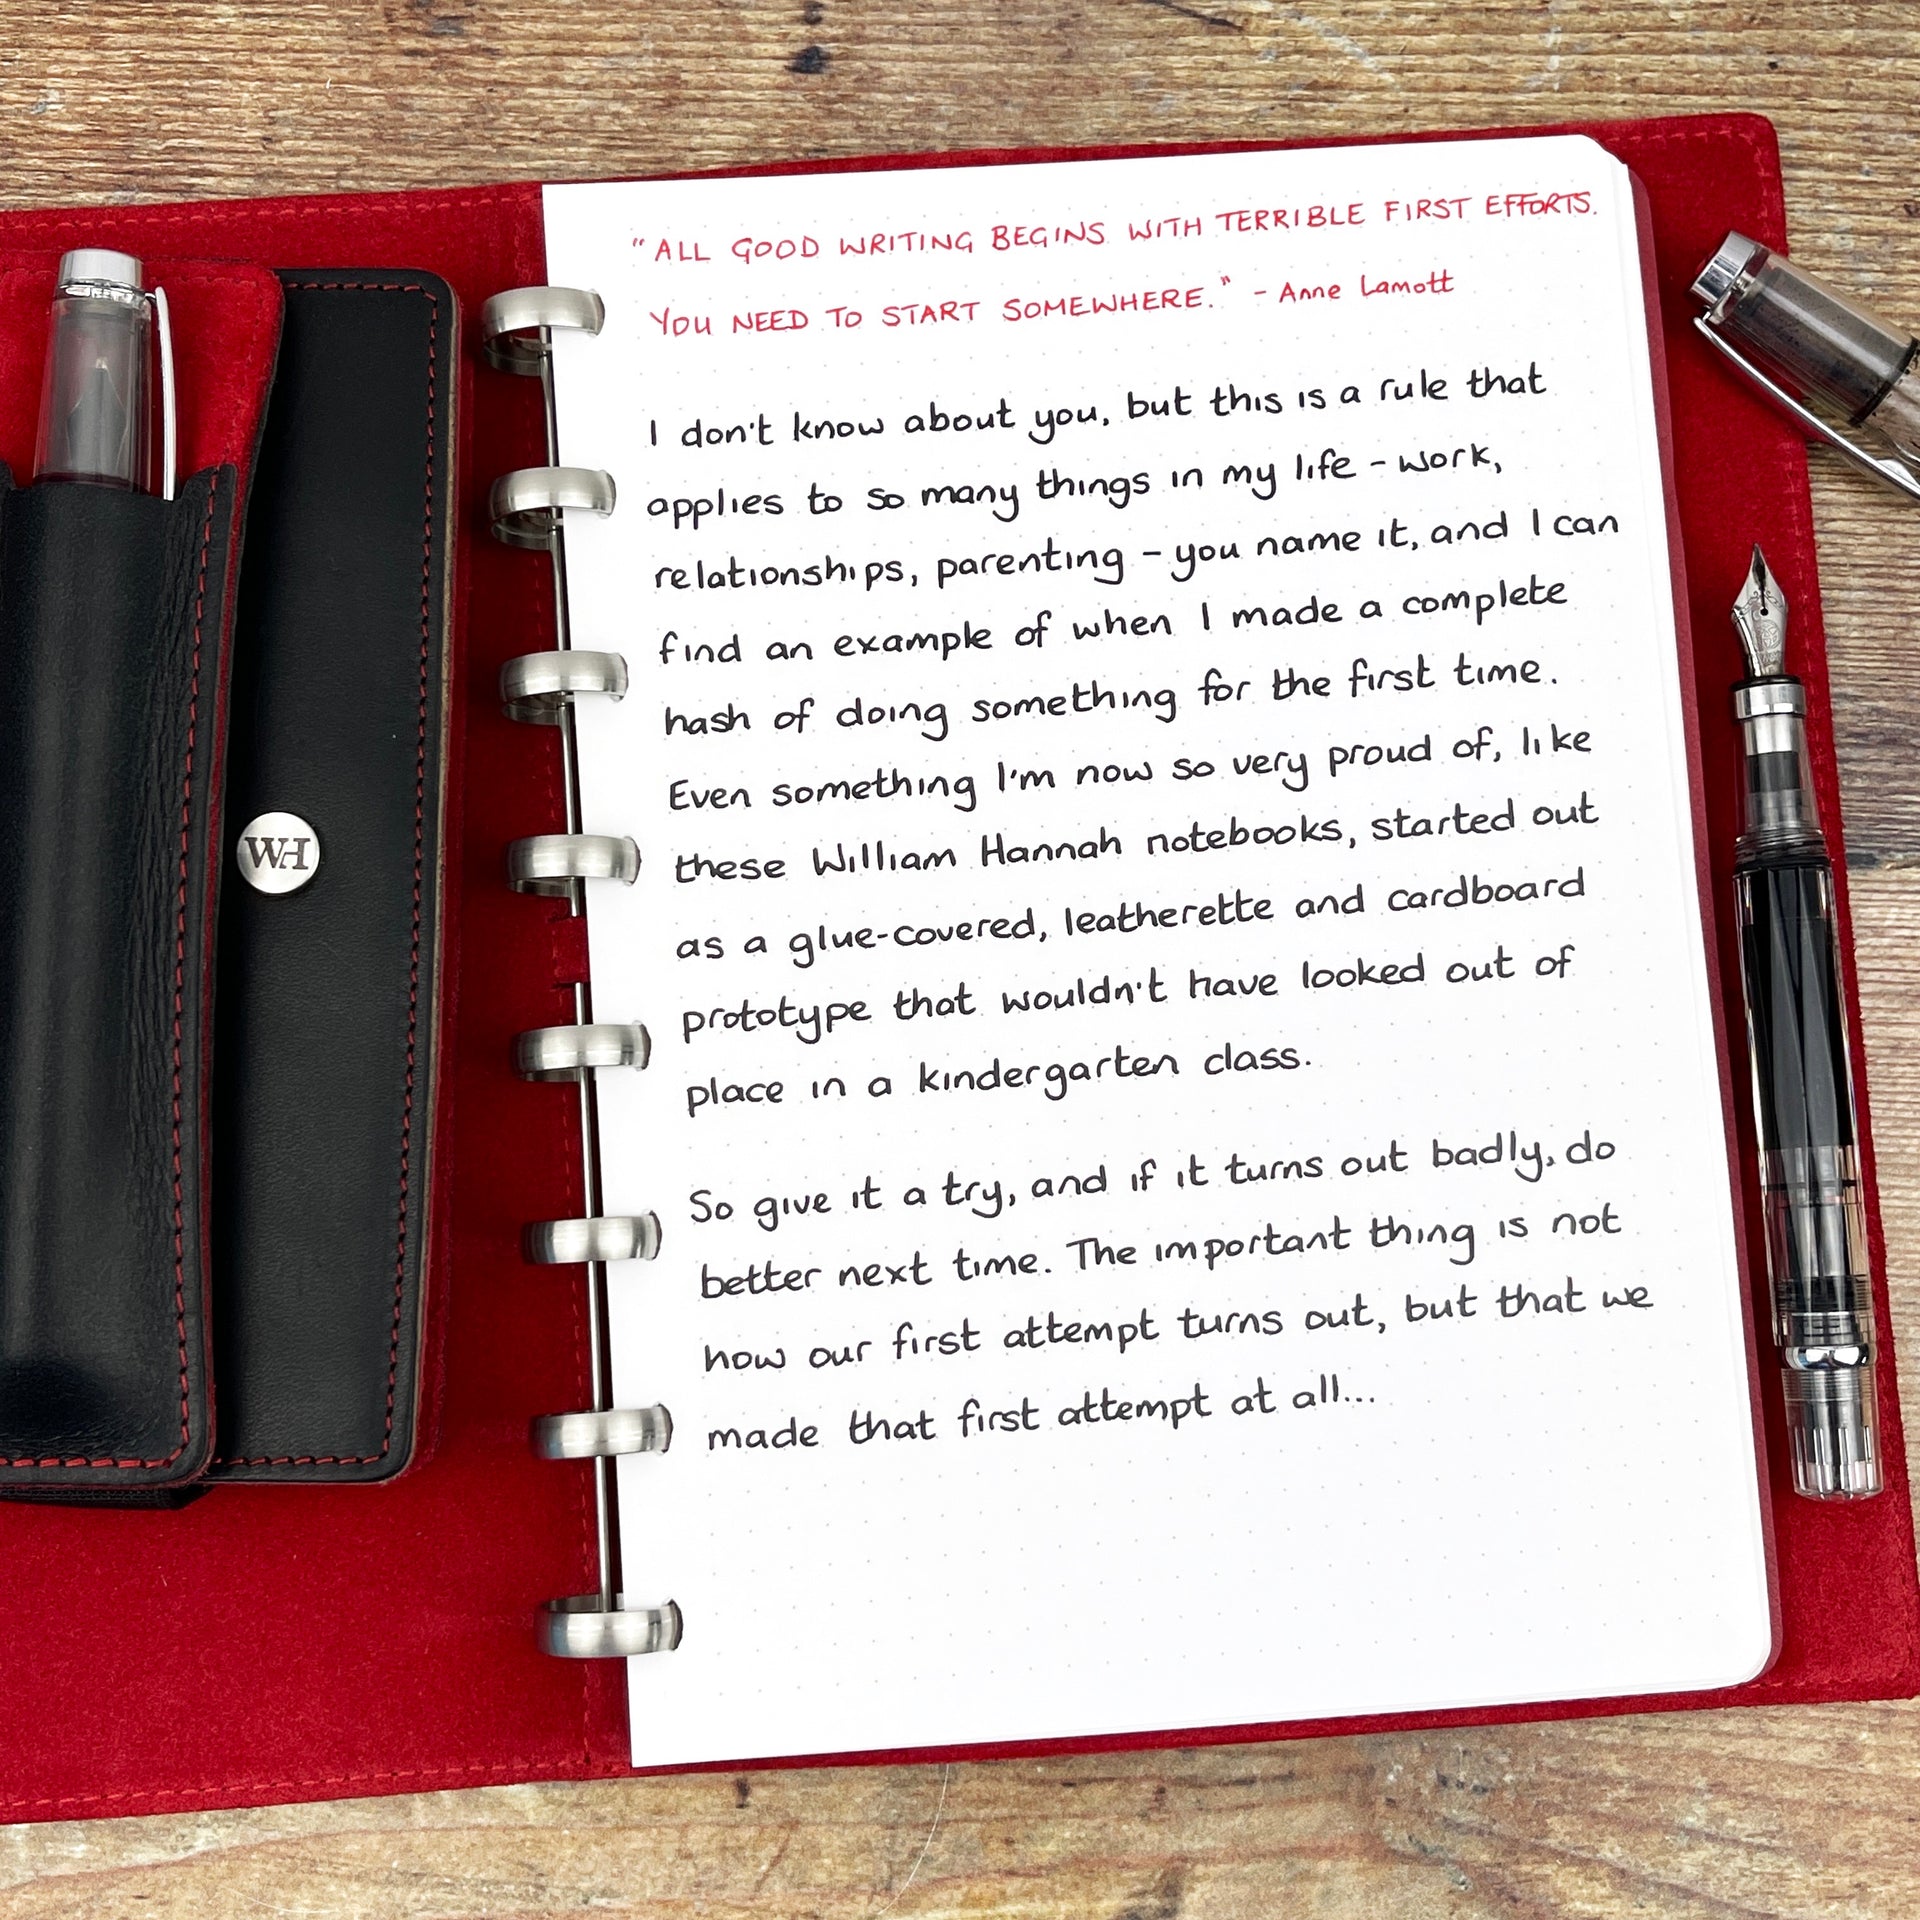 WH
"ALL GOOD WRITING BEGINS WITH TERRIBLE FIRST EFFORTS.
YOU NEED TO START SOMEWHERE." - Anne Lamott
I don't know about you, but this is a rule that
applies to so many things in my life - work,
relationships, parenting - you name it, and I can
find an example of when I made a complete
hash of doing something for the first time.
Even something I'm now so very proud of, like
these William Hannah notebooks, started out
as a glue-covered, leatherette and cardboard
prototype that wouldn't have looked out of
place in a kindergarten class.
So give it a try, and if it turns out badly, do
better next time. The important thing is not
how our first attempt turns out, but that we
made that first attempt at all...